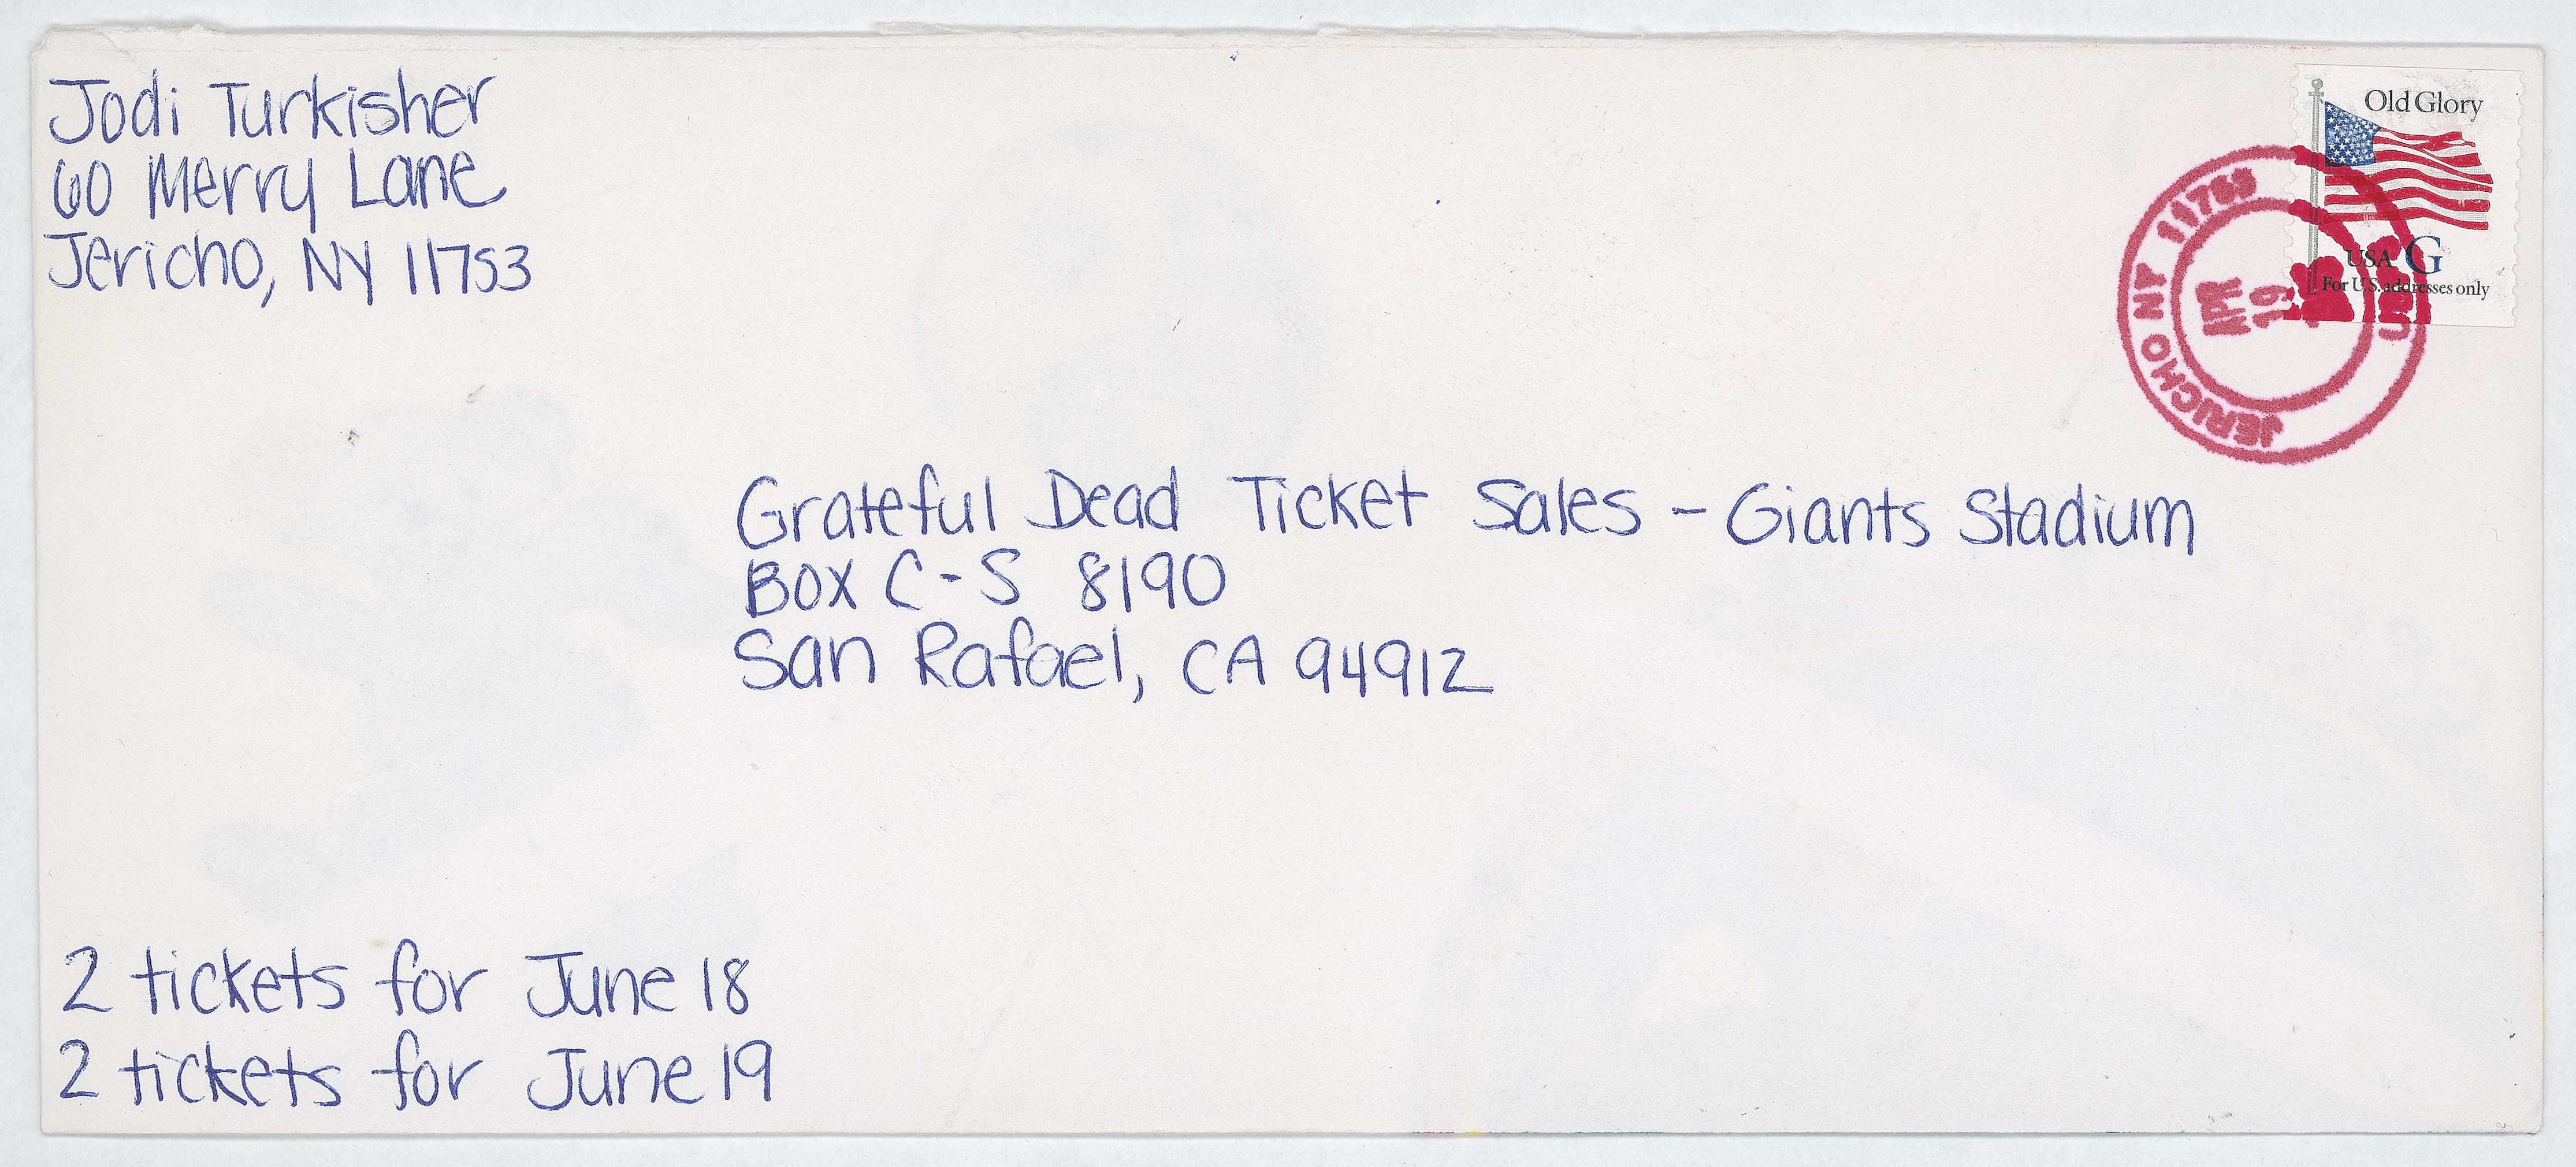 Jodi Turkisher
60 Merry Lane
Jericho, NY 11753
Old Glory
USA G
For U.S. addresses only
JERICHO NY 11753
APR
19
Grateful Dead Ticket Sales - Giants Stadium
Box C-S 8190
San Rafael, CA 94912
2 tickets for June 18
2 tickets for June 19